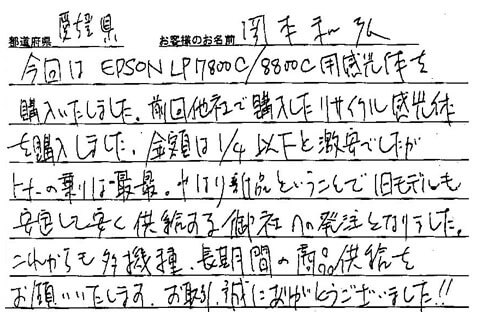 都道府県 愛媛県 お客様のお名前 岡本 和弘
今回は EPSON LP7800C/8800C用感光体を
購入いたしました。前回他社で購入したリサイクル感光体
を購入しました。金額は1/4以下と激安でしたが
トナーの乗りは最最。やはり新品ということで旧モデルも
安定して安く供給する御社への発注となりました。
これからも多機種、長期間の商品供給を
お願いいたします。お取引、誠にありがとうございました!!